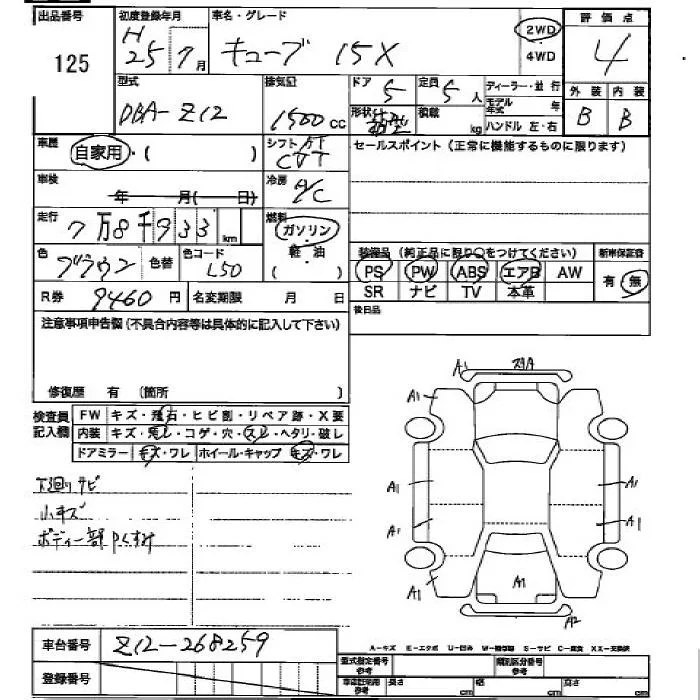 出品番号 初度登録年月 車名・グレード 2WD 評価点
125 H25 7月 キューブ 15X 4WD 4
型式 排気量 ドア 定員 ディーラー・並行 外装 内装
DBA-Z12 1500cc 5 5人 モデル年式 年 B B
形状 箱型 積載 kg ハンドル 左・右
車歴 自家用・( ) シフト AT CVT セールスポイント(正常に機能するものに限ります)
車検 年 月( 日) 冷房 A/C
走行 7万8千933km 燃料 ガソリン・軽油
色 ブラウン 色替 色コード L50 装備品(純正品に限り○をつけてください) 新車保証書
PS PW ABS エアB AW 有・無
R券 9460円 名変期限 月 日 SR ナビ TV 本革
注意事項申告欄(不具合内容等は具体的に記入して下さい) 後日品
修復歴 有 (箇所 )
検査員 FW キズ・飛石・ヒビ割・リペア跡・X要
記入欄 内装 キズ・汚レ・コゲ・穴・スレ・ヘタリ・破レ
ドアミラー キズ・ワレ ホイール・キャップ キズ・ワレ
下廻りサビ
小キズ
ボディ一部Pくすみ
A1
A1 A1
A1 A1
A1 A1
A1 A1
A2
車台番号 Z12-268259
A－キズ E－エクボ U－凹み S－サビ C－腐食 XX－交換済
登録番号 型式指定番号 参考 類別区分番号 参考
車庫証明用 参考 長さ cm 幅 cm 高さ cm